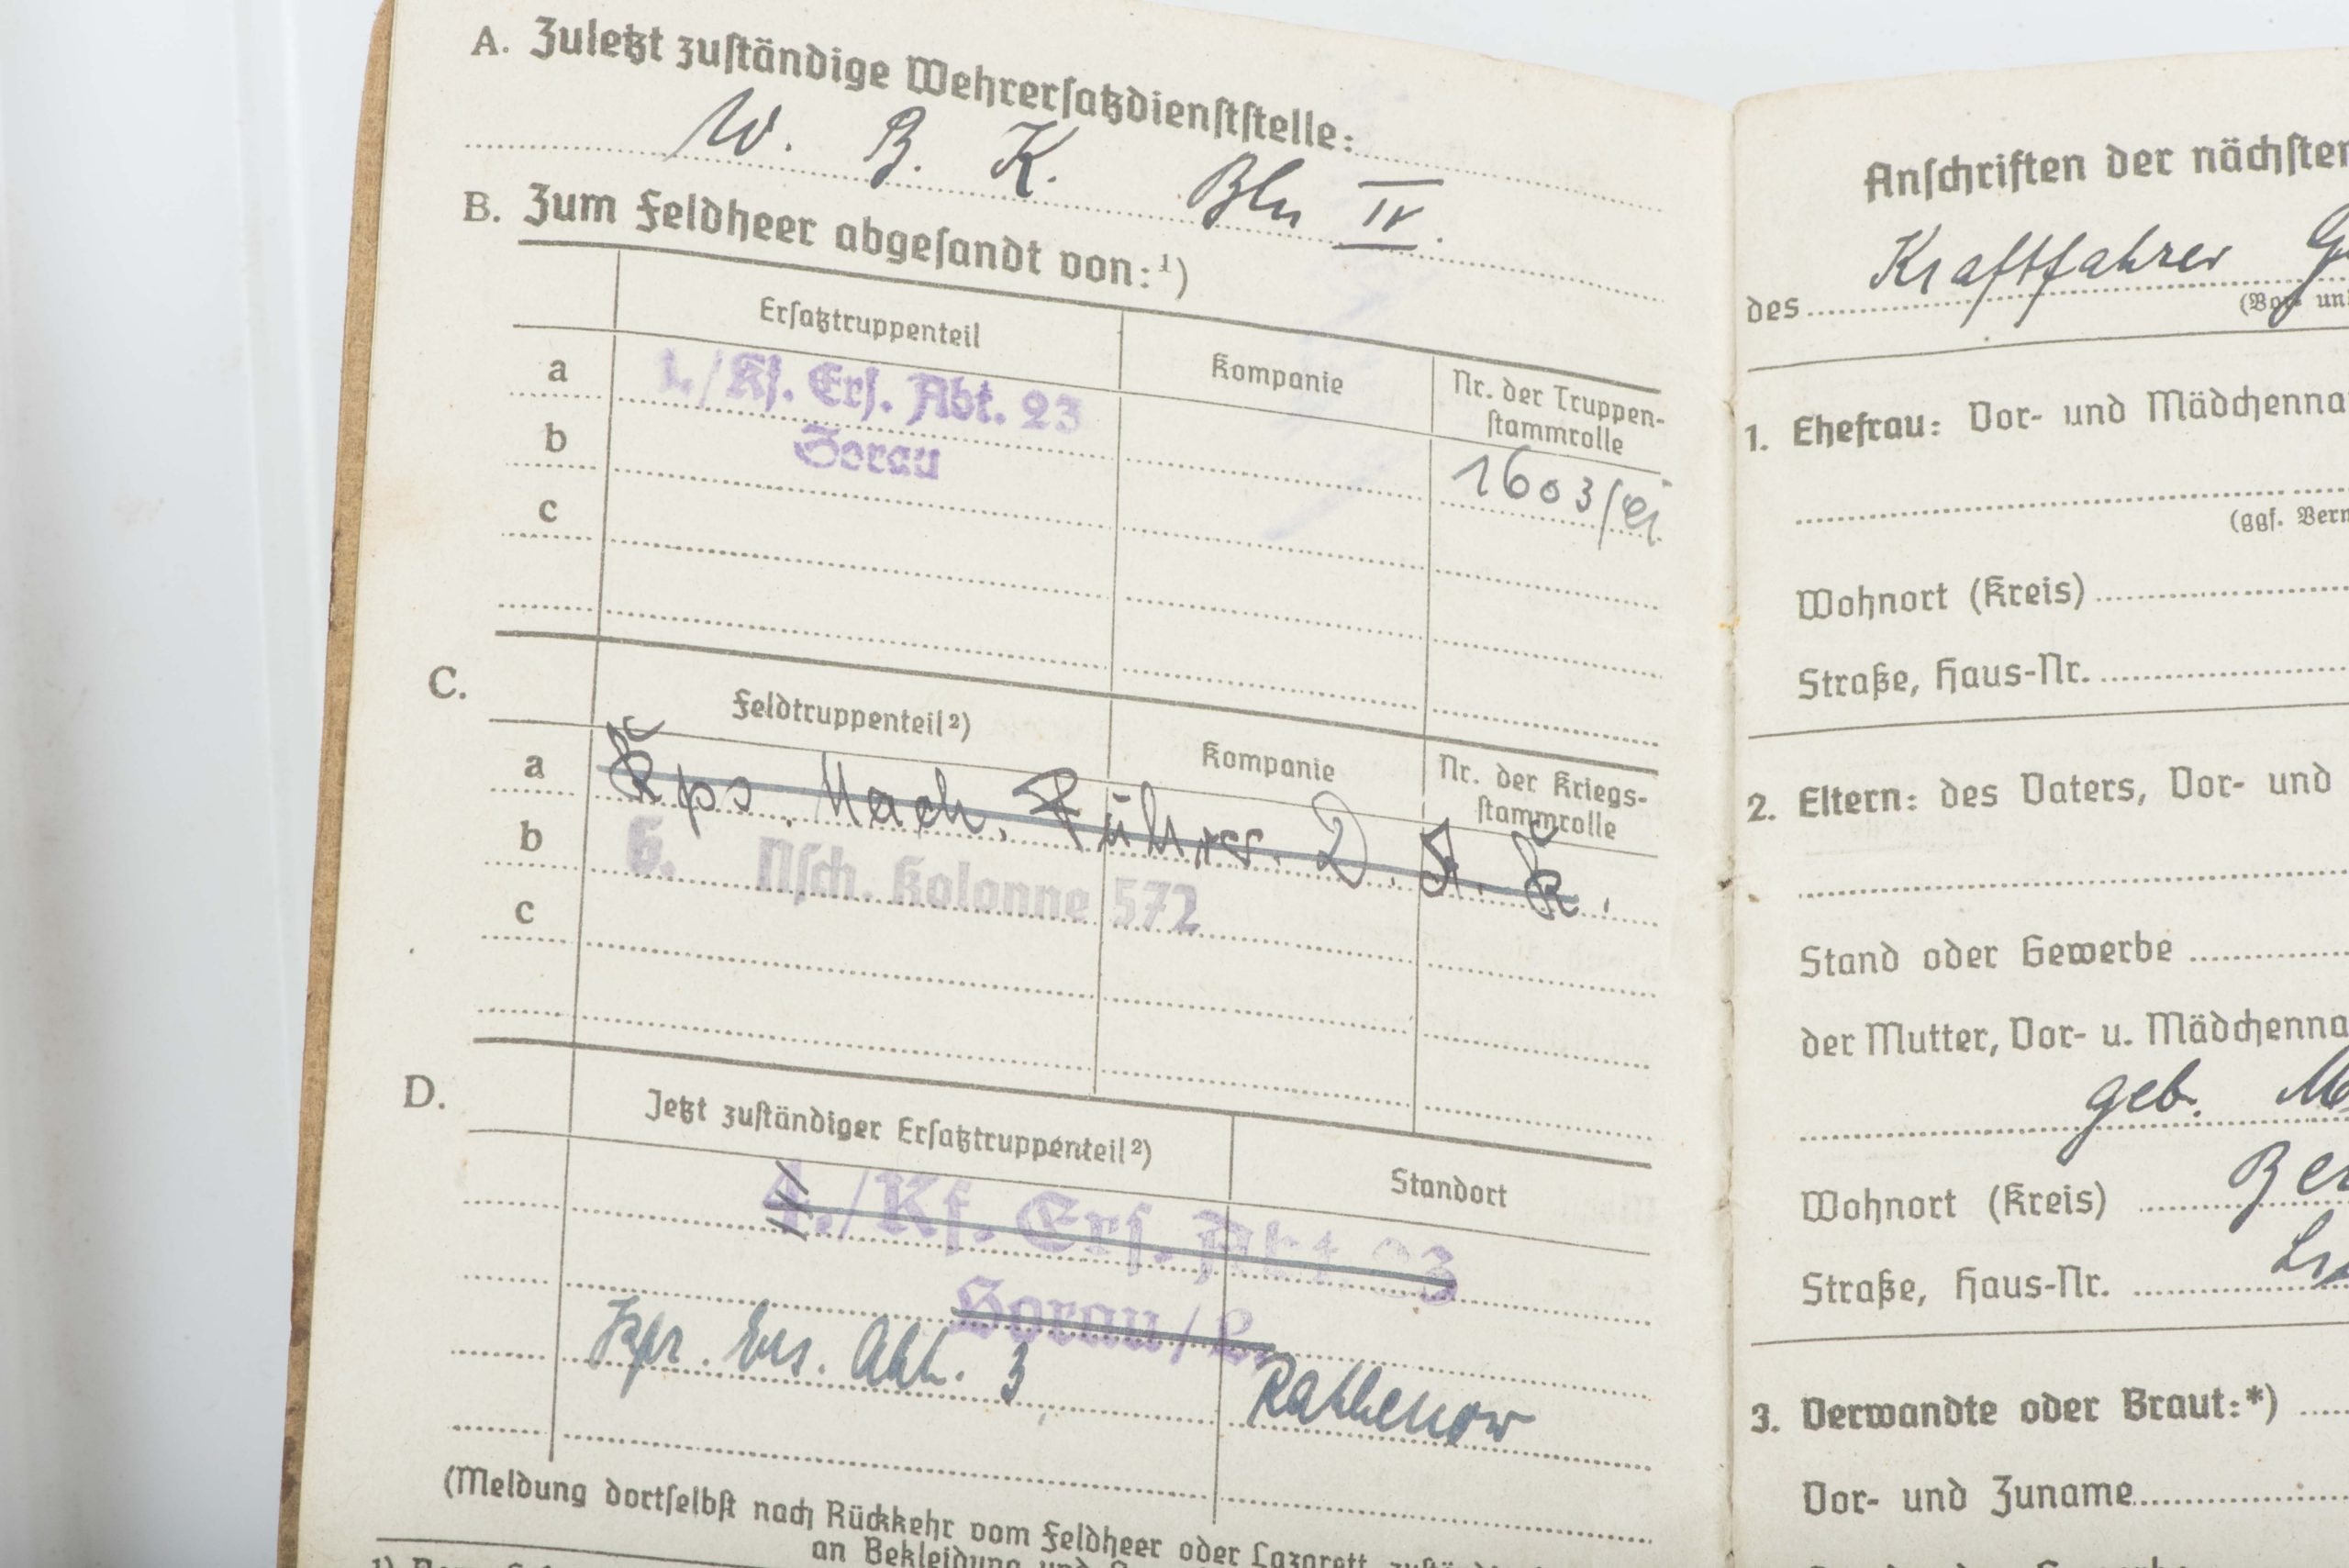 A. Zuletzt zuständige Wehrersatzdienststelle:
W. B. K. Bln IV.
B. Zum Feldheer abgesandt von:¹)
Ersatztruppenteil Kompanie Nr. der Truppen-
stammrolle
a 1./Kf. Ers. Abt. 23
b Sorau 1603/
c
C. Feldtruppenteil²) Kompanie Nr. der Kriegs-
stammrolle
a Kps. Nach. Führer. D. A. K.
b 6. Nsch. Kolonne 572
c
D. Jetzt zuständiger Ersatztruppenteil²) Standort
4./Kf. Ers. Abt 23
Sorau/L.
Kfr. Ers. Abt. 3 Rathenow
(Meldung dortselbst nach Rückkehr vom Feldheer oder Lazarett,
an Bekleidung und
Anschriften der nächsten
des Kraftfahrer
1. Ehefrau: Vor- und Mädchenna
(ggf. Verm
Wohnort (Kreis)
Straße, Haus-Nr.
2. Eltern: des Vaters, Vor- und
Stand oder Gewerbe
der Mutter, Vor- u. Mädchenna
geb. M
Wohnort (Kreis) Ber
Straße, Haus-Nr.
3. Verwandte oder Braut:*)
Vor- und Zuname